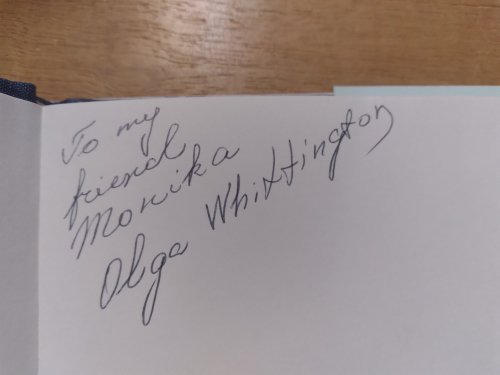 To my
friend
Monika
Olga Whittington